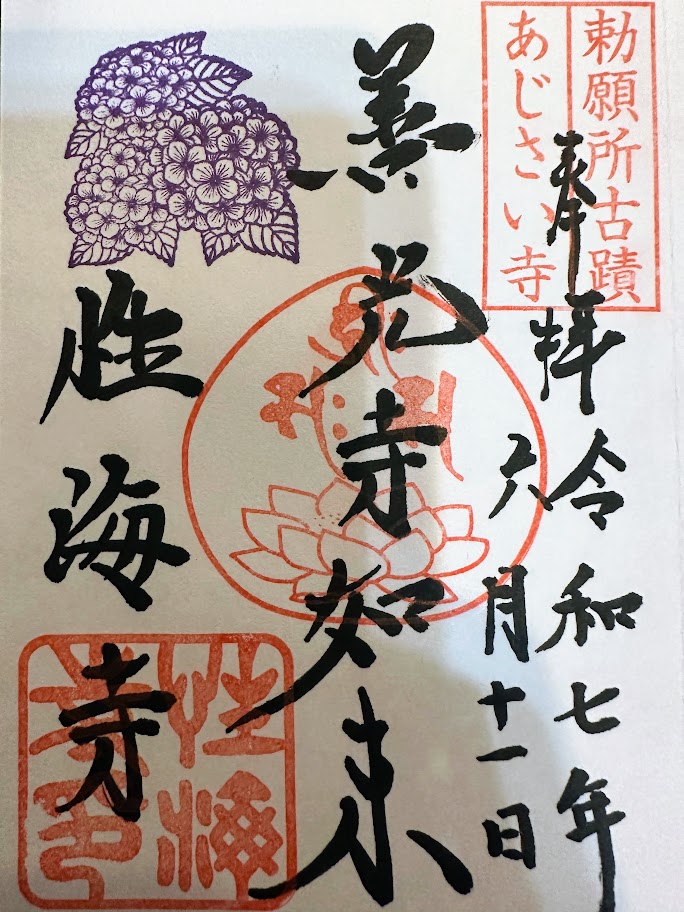 勅願所古蹟
あじさい寺
奉拝
令和七年
六月十一日
善光寺如来
性海寺
性海
寺印